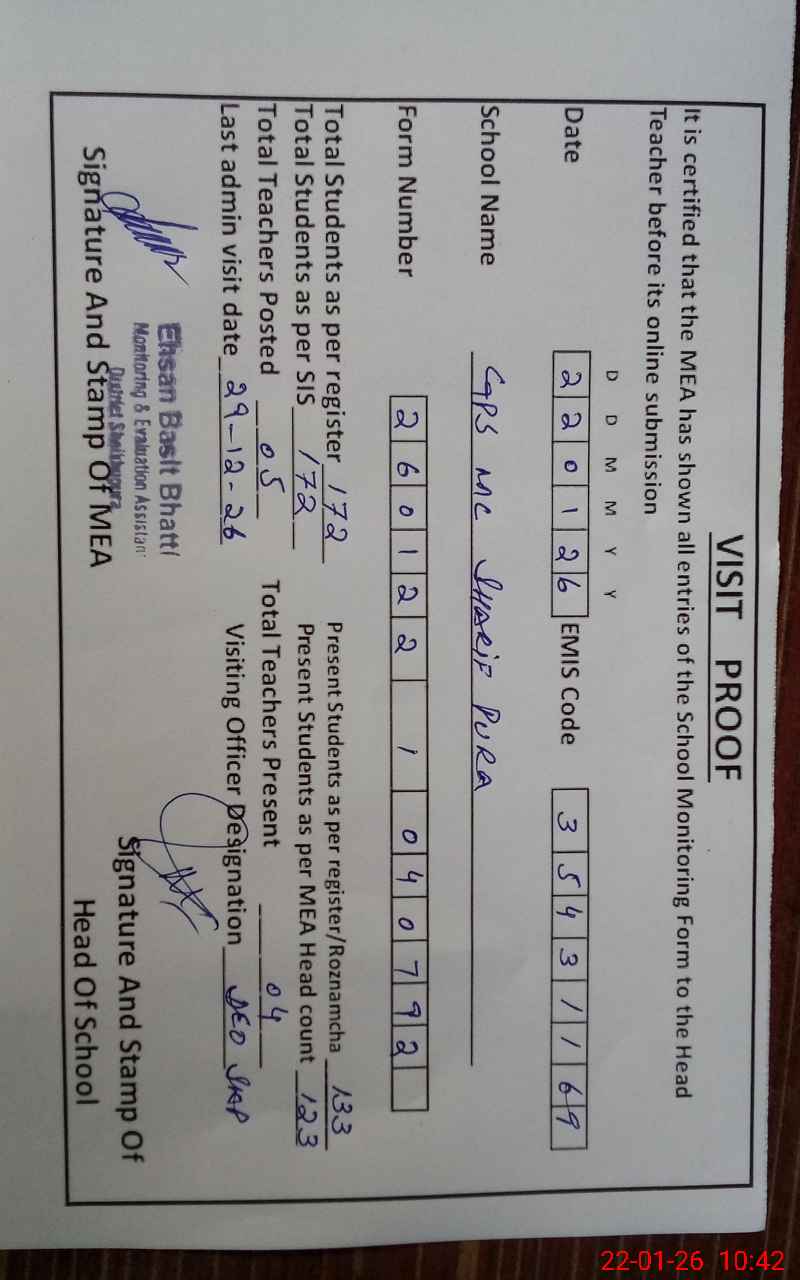 VISIT PROOF
It is certified that the MEA has shown all entries of the School Monitoring Form to the Head
Teacher before its online submission
D D M M Y Y
Date 220126 EMIS Code 35431169
School Name GPS MC SHARIF PURA
Form Number 260122 1 040792
Total Students as per register 172 Present Students as per register/Roznamcha 133
Total Students as per SIS 172 Present Students as per MEA Head count 123
Total Teachers Posted 05 Total Teachers Present 04
Last admin visit date 29-12-26 Visiting Officer Designation DEO SKP
Ehsan Basit Bhatti
Monitoring & Evaluation Assistant
District Sheikhupura
Signature And Stamp Of MEA
Signature And Stamp Of
Head Of School
22-01-26 10:42